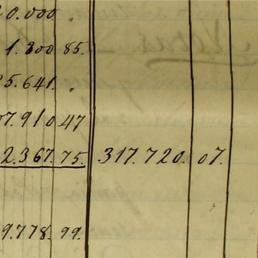 0.000.
1.300 85.
5.641.
7.910 47
2.367.75. 317.720. 07.
9.778. 99.